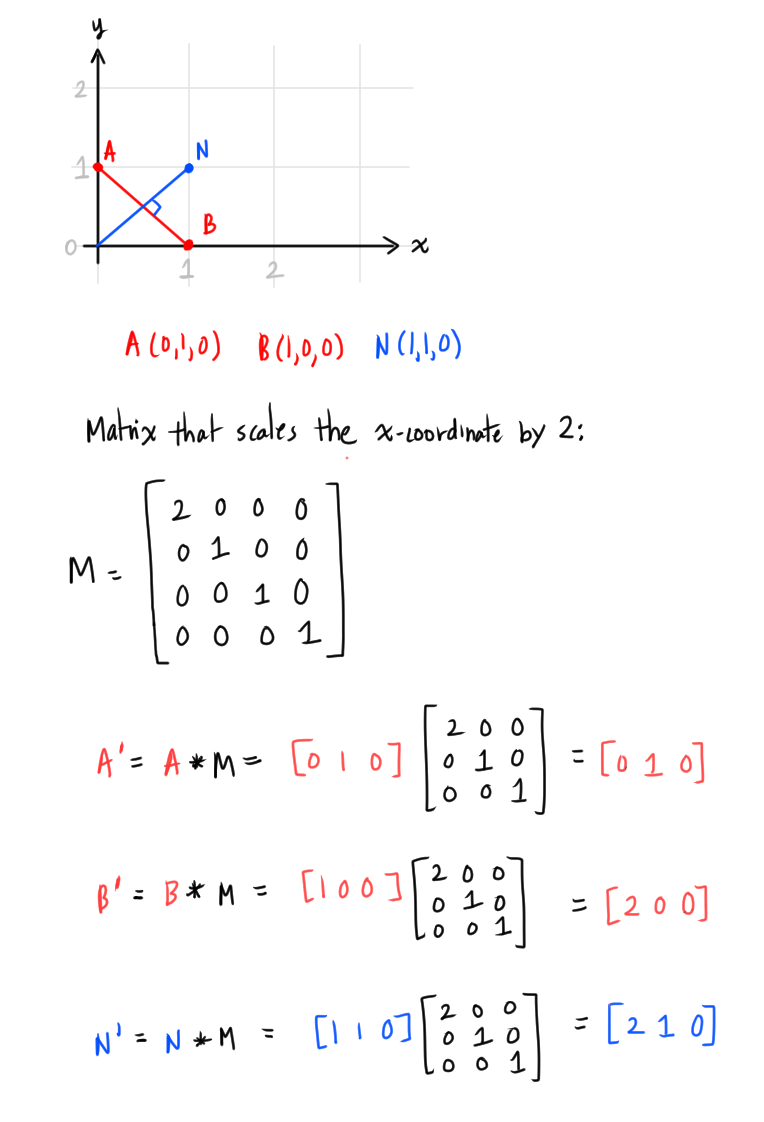 y
2
A
N
1
B
0
x
1 2
A (0,1,0) B(1,0,0) N(1,1,0)
Matrix that scales the x-coordinate by 2:
2 0 0 0
0 1 0 0
M =
0 0 1 0
0 0 0 1
2 0 0
A' = A * M = [0 1 0] 0 1 0 = [0 1 0]
0 0 1
2 0 0
B' = B * M = [1 0 0] 0 1 0 = [2 0 0]
0 0 1
2 0 0
N' = N * M = [1 1 0] 0 1 0 = [2 1 0]
0 0 1